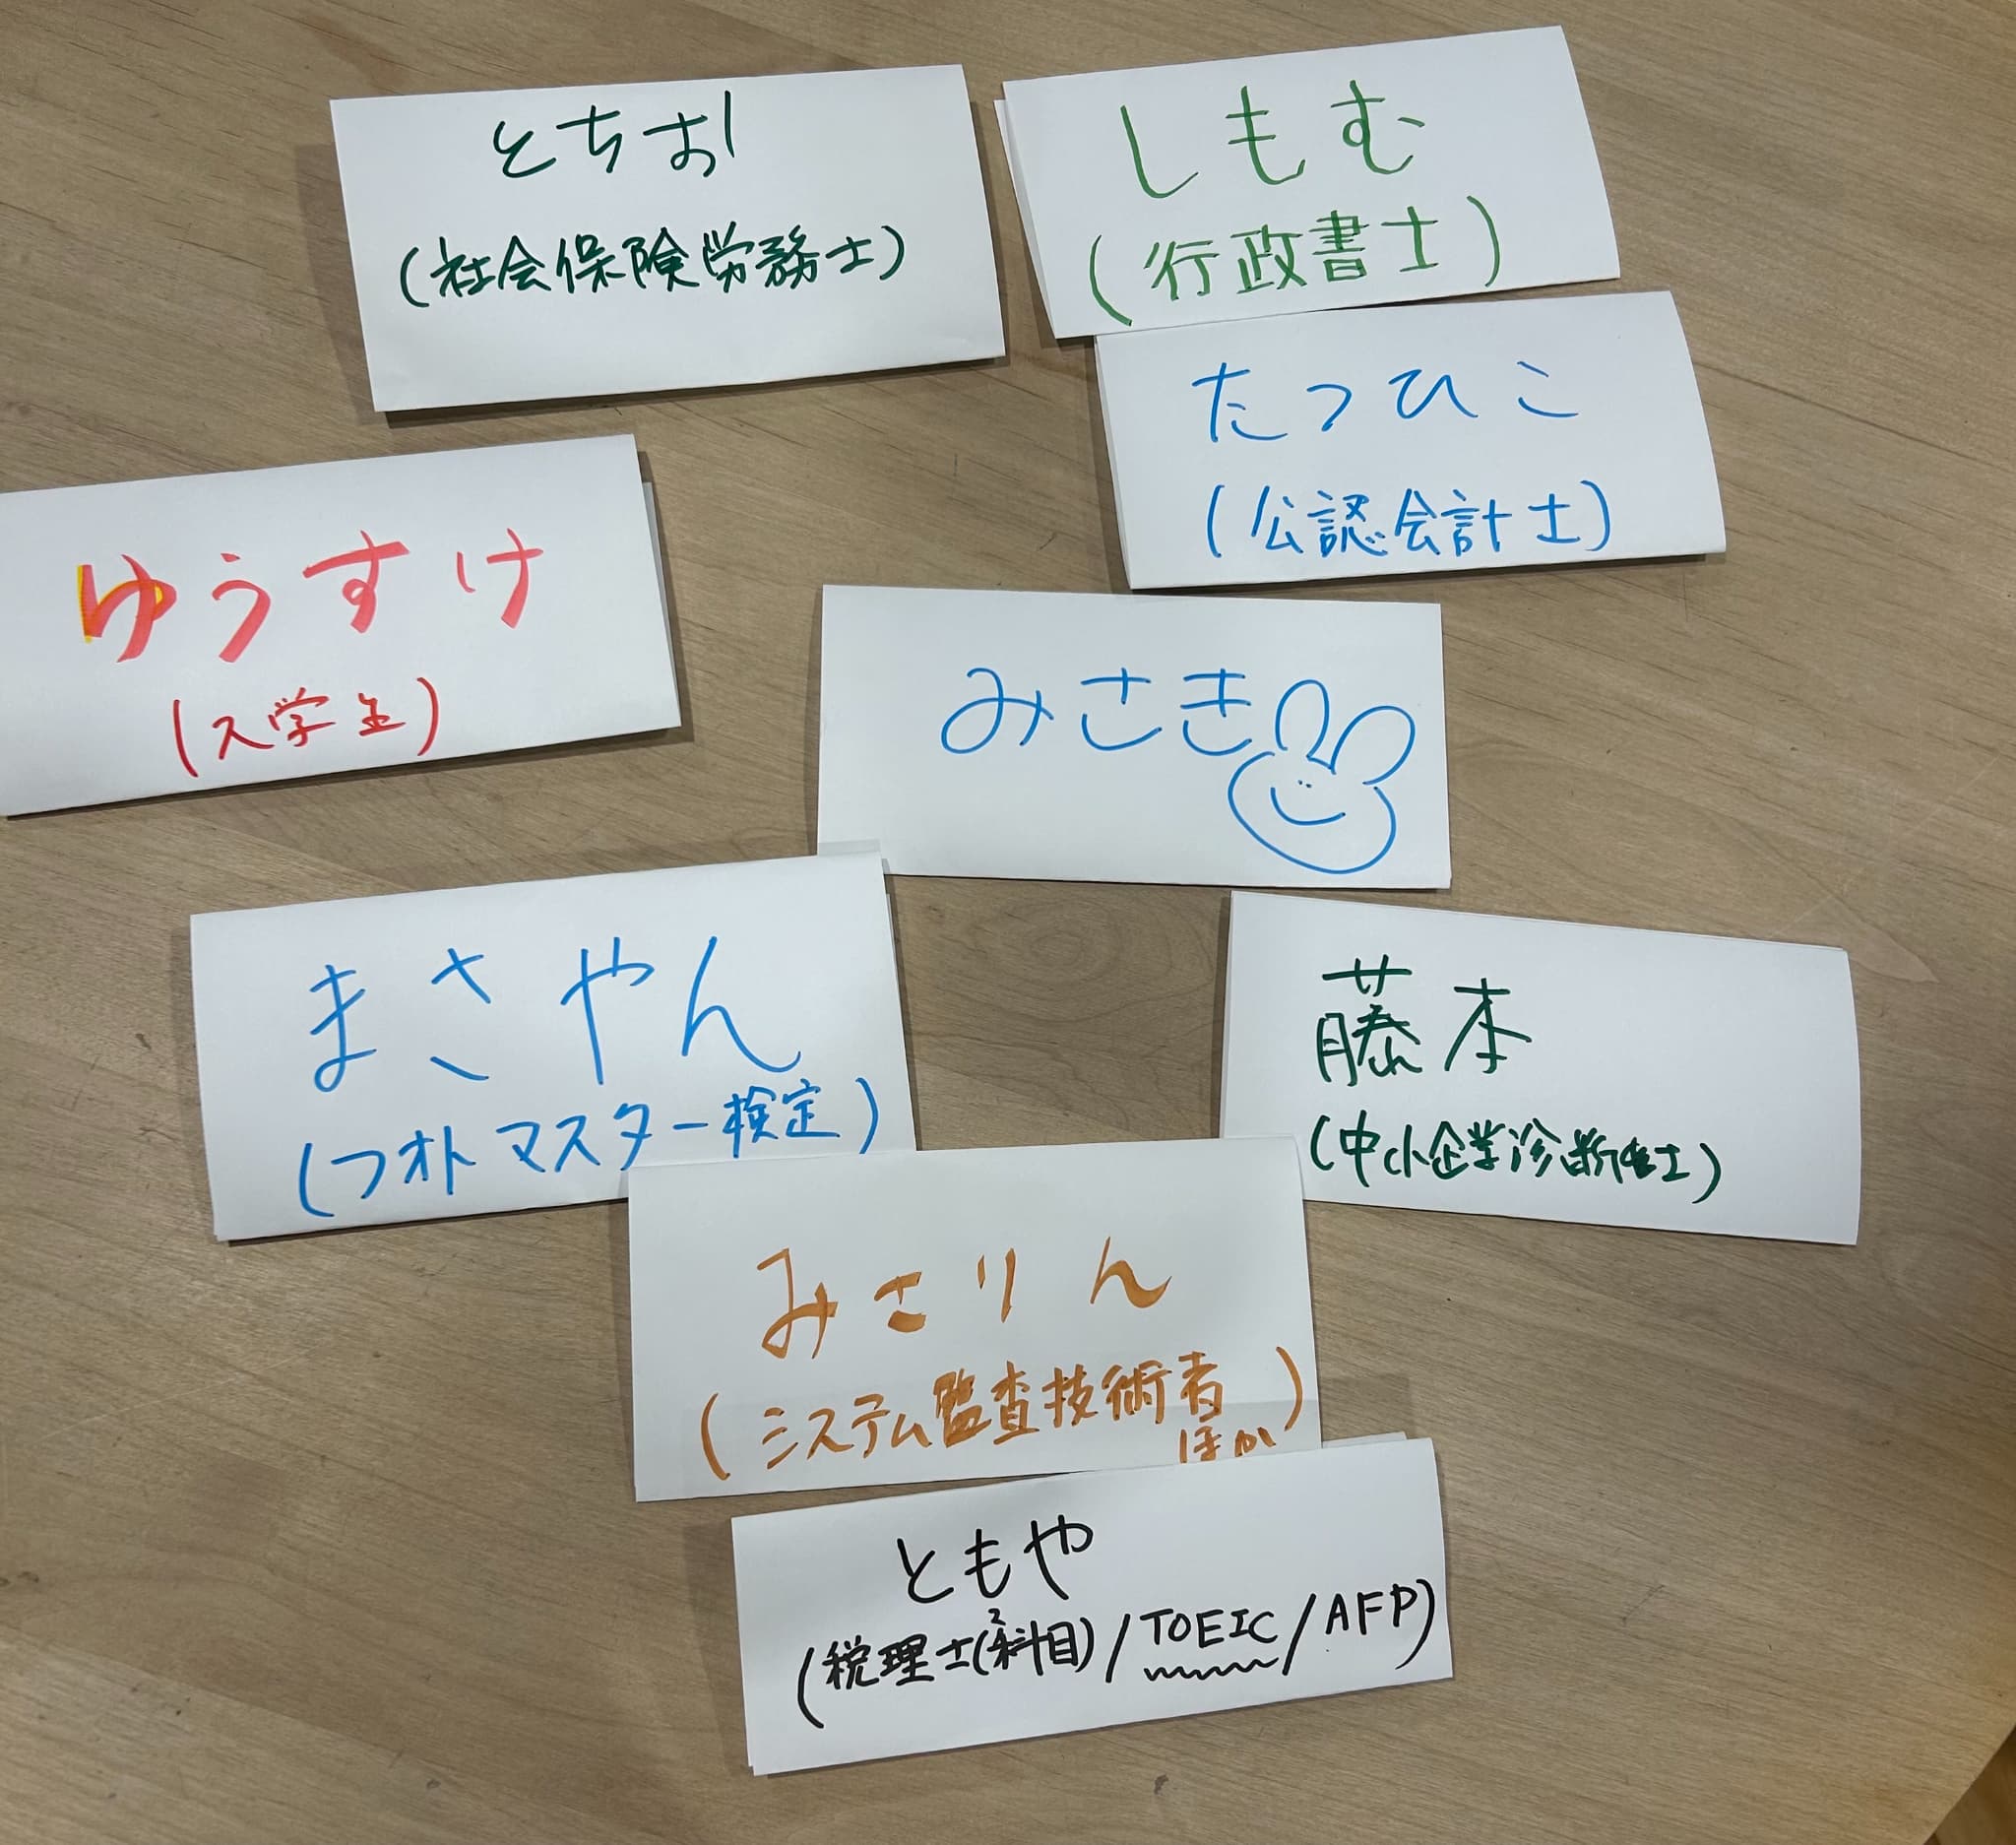 とちお
(社会保険労務士)
しもむ
(行政書士)
たつひこ
(公認会計士)
ゆうすけ
(大学生)
みさき
まさやん
(フォトマスター検定)
藤本
(中小企業診断士)
みさりん
(システム監査技術者
ほか)
ともや
(税理士(2科目)/TOEIC/AFP)